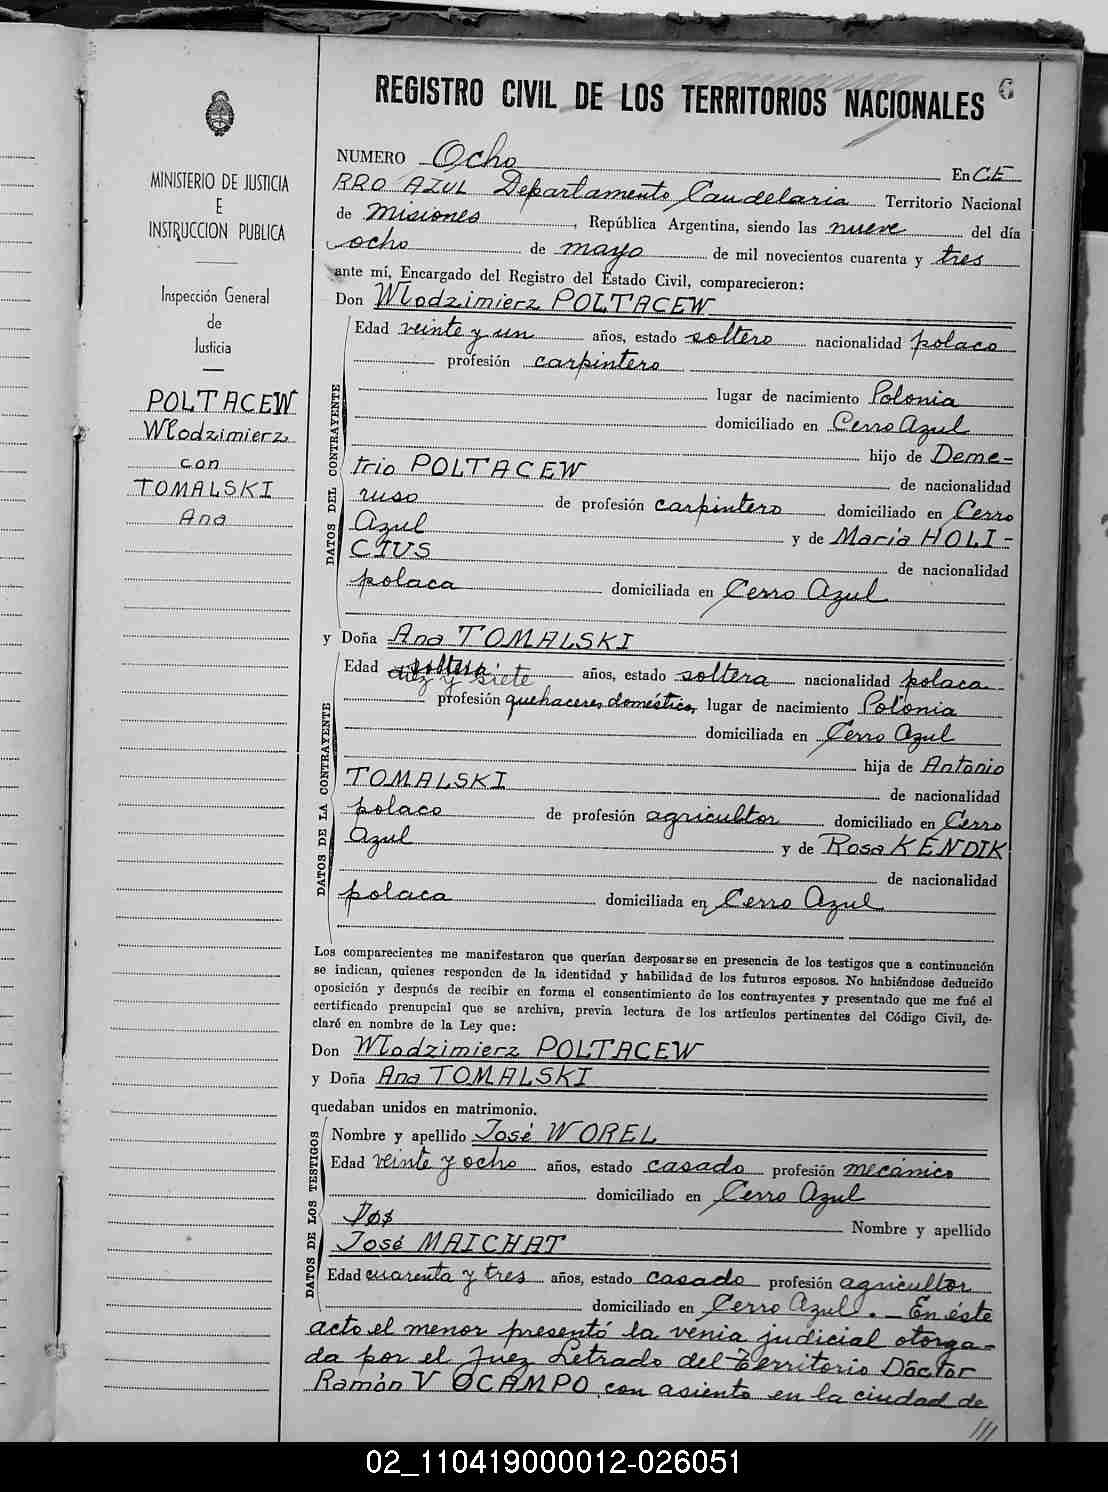 6
REGISTRO CIVIL DE LOS TERRITORIOS NACIONALES
MINISTERIO DE JUSTICIA
E
INSTRUCCION PUBLICA
Inspección General
de
Justicia
POLTACEW
Wlodzimierz
con
TOMALSKI
Ana
NUMERO Ocho En CE
RRO AZUL Departamento Candelaria Territorio Nacional
de Misiones, República Argentina, siendo las nueve del día
ocho de mayo de mil novecientos cuarenta y tres
ante mí, Encargado del Registro del Estado Civil, comparecieron:
Don Wlodzimierz POLTACEW
DATOS DEL CONTRAYENTE
Edad veinte y un años, estado soltero nacionalidad polaco
profesión carpintero
lugar de nacimiento Polonia
domiciliado en Cerro Azul
hijo de Deme=
trio POLTACEW de nacionalidad
ruso de profesión carpintero domiciliado en Cerro
Azul y de María HOLI-
CIUS de nacionalidad
polaca domiciliada en Cerro Azul
y Doña Ana TOMALSKI
DATOS DE LA CONTRAYENTE
Edad soltera diez y siete años, estado soltera nacionalidad polaca
profesión quehaceres doméstico, lugar de nacimiento Polonia
domiciliada en Cerro Azul
hija de Antonio
TOMALSKI de nacionalidad
polaco de profesión agricultor domiciliado en Cerro
Azul y de Rosa KENDIK
de nacionalidad
polaca domiciliada en Cerro Azul
Los comparecientes me manifestaron que querían desposarse en presencia de los testigos que a continuación
se indican, quienes responden de la identidad y habilidad de los futuros esposos. No habiéndose deducido
oposición y después de recibir en forma el consentimiento de los contrayentes y presentado que me fué el
certificado prenupcial que se archiva, previa lectura de los artículos pertinentes del Código Civil, de-
claré en nombre de la Ley que:
Don Wlodzimierz POLTACEW
y Doña Ana TOMALSKI
quedaban unidos en matrimonio.
DATOS DE LOS TESTIGOS
Nombre y apellido José WOREL
Edad veinte y ocho años, estado casado profesión mecánico
domiciliado en Cerro Azul
Nombre y apellido
José MAICHAT
Edad cuarenta y tres años, estado casado profesión agricultor
domiciliado en Cerro Azul. - En éste
acto el menor presentó la venia judicial otorga-
da por el Juez Letrado del Territorio Doctor
Ramón V OCAMPO con asiento en la ciudad de
///
02_110419000012-026051